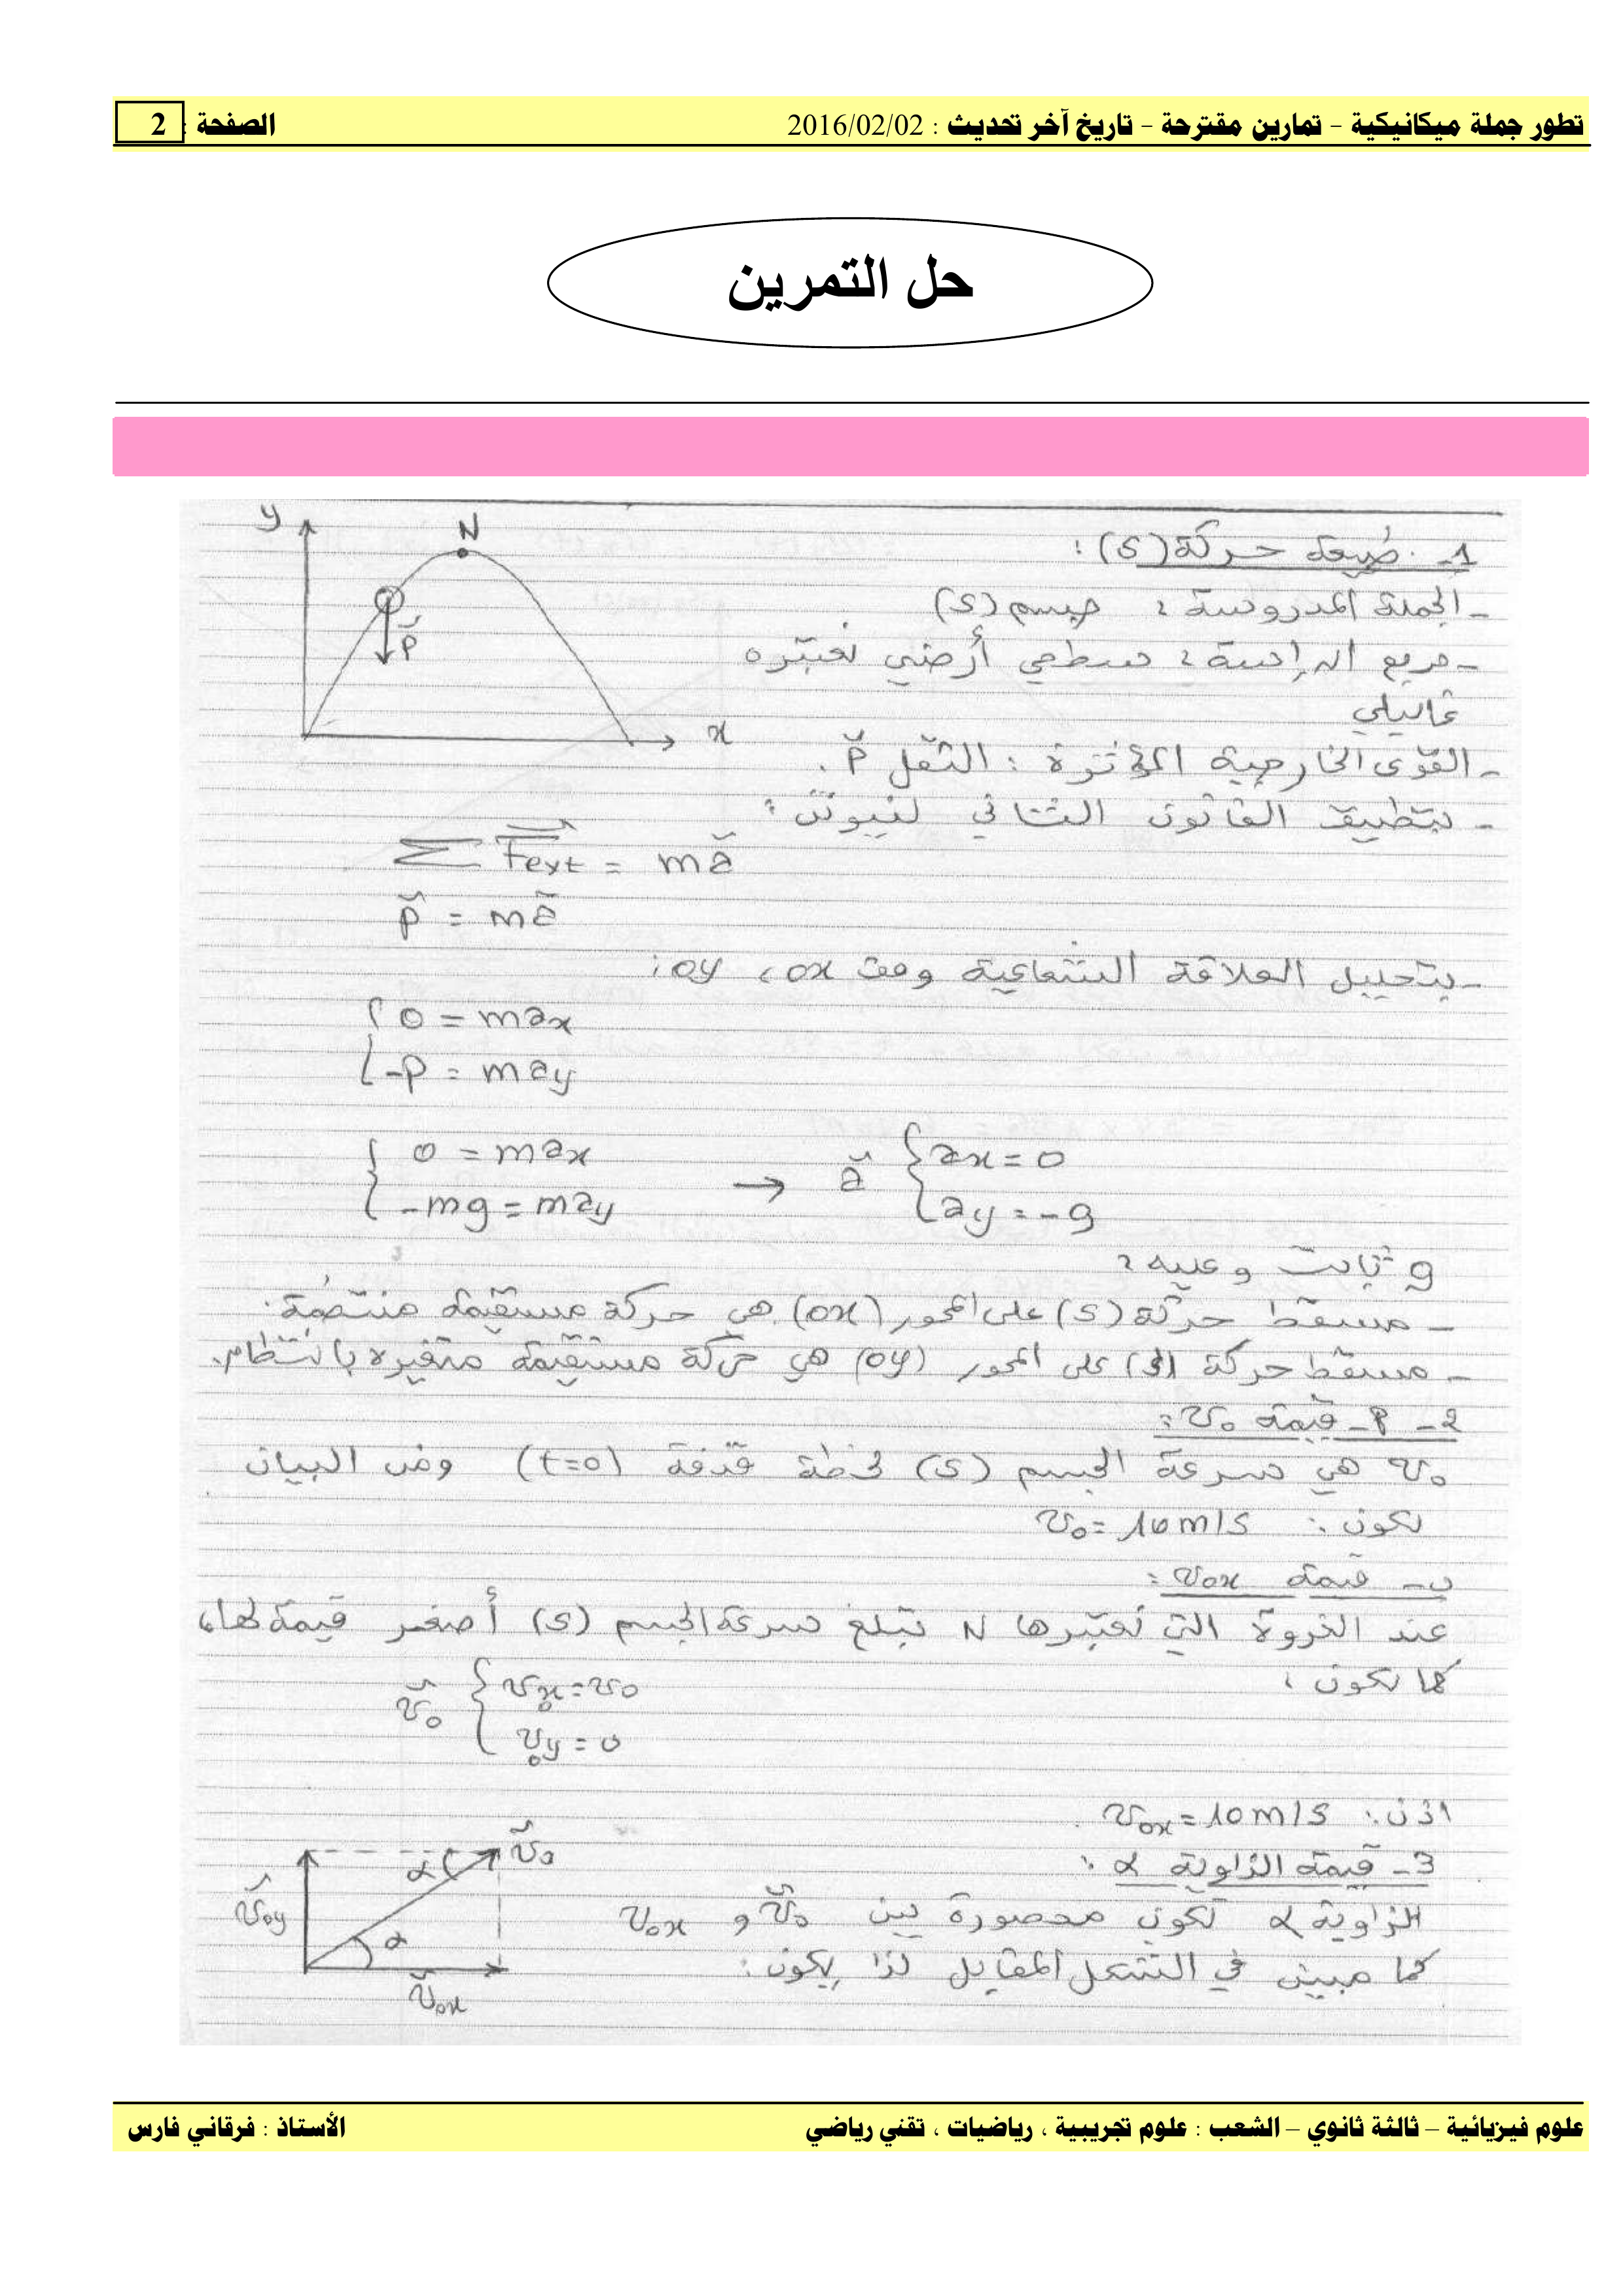 تطور جملة ميكانيكية – تمارين مقترحة – تاريخ آخر تحديث : 2016/02/02 الصفحة : 2
حل التمرين
1- طبيعة حركة (S) :
- الجملة المدروسة : جسم (S)
- مرجع الدراسة : سطحي أرضي نعتبره
غاليلي
- القوى الخارجية المؤثرة : الثقل P⃗ .
- بتطبيق القانون الثاني لنيوتن :
Σ F⃗ext = m a⃗
P⃗ = m a⃗
- بتحليل العلاقة الشعاعية وفق ox ، oy :
{ 0 = m ax
-P = m ay
{ 0 = m ax → a⃗ { ax = 0
-mg = m ay ay = -g
g ثابت وعليه :
- مسقط حركة (S) على المحور (ox) هي حركة مستقيمة منتظمة .
- مسقط حركة (S) على المحور (oy) هي حركة مستقيمة متغيرة بانتظام .
2- أ- قيمة v₀ :
v₀ هي سرعة الجسم (S) لحظة قذفة (t=0) ومن البيان
يكون : v₀ = 10 m/s
ب- قيمة v₀x :
عند الذروة التي نعتبرها N تبلغ سرعة الجسم (S) أصغر قيمة لها ،
كما يكون :
v⃗₀ { v₀x = v₀
v₀y = 0
اذن : v₀x = 10 m/s
3- قيمة الزاوية α :
الزاوية α تكون محصورة بين v⃗₀ و v₀x
كما مبين في الشكل المقابل لذا يكون :
y
N
P⃗
x
v⃗₀
α
v⃗₀y
α
v⃗₀x
علوم فيزيائية – ثالثة ثانوي – الشعب : علوم تجريبية ، رياضيات ، تقني رياضي الأستاذ : فرقاني فارس